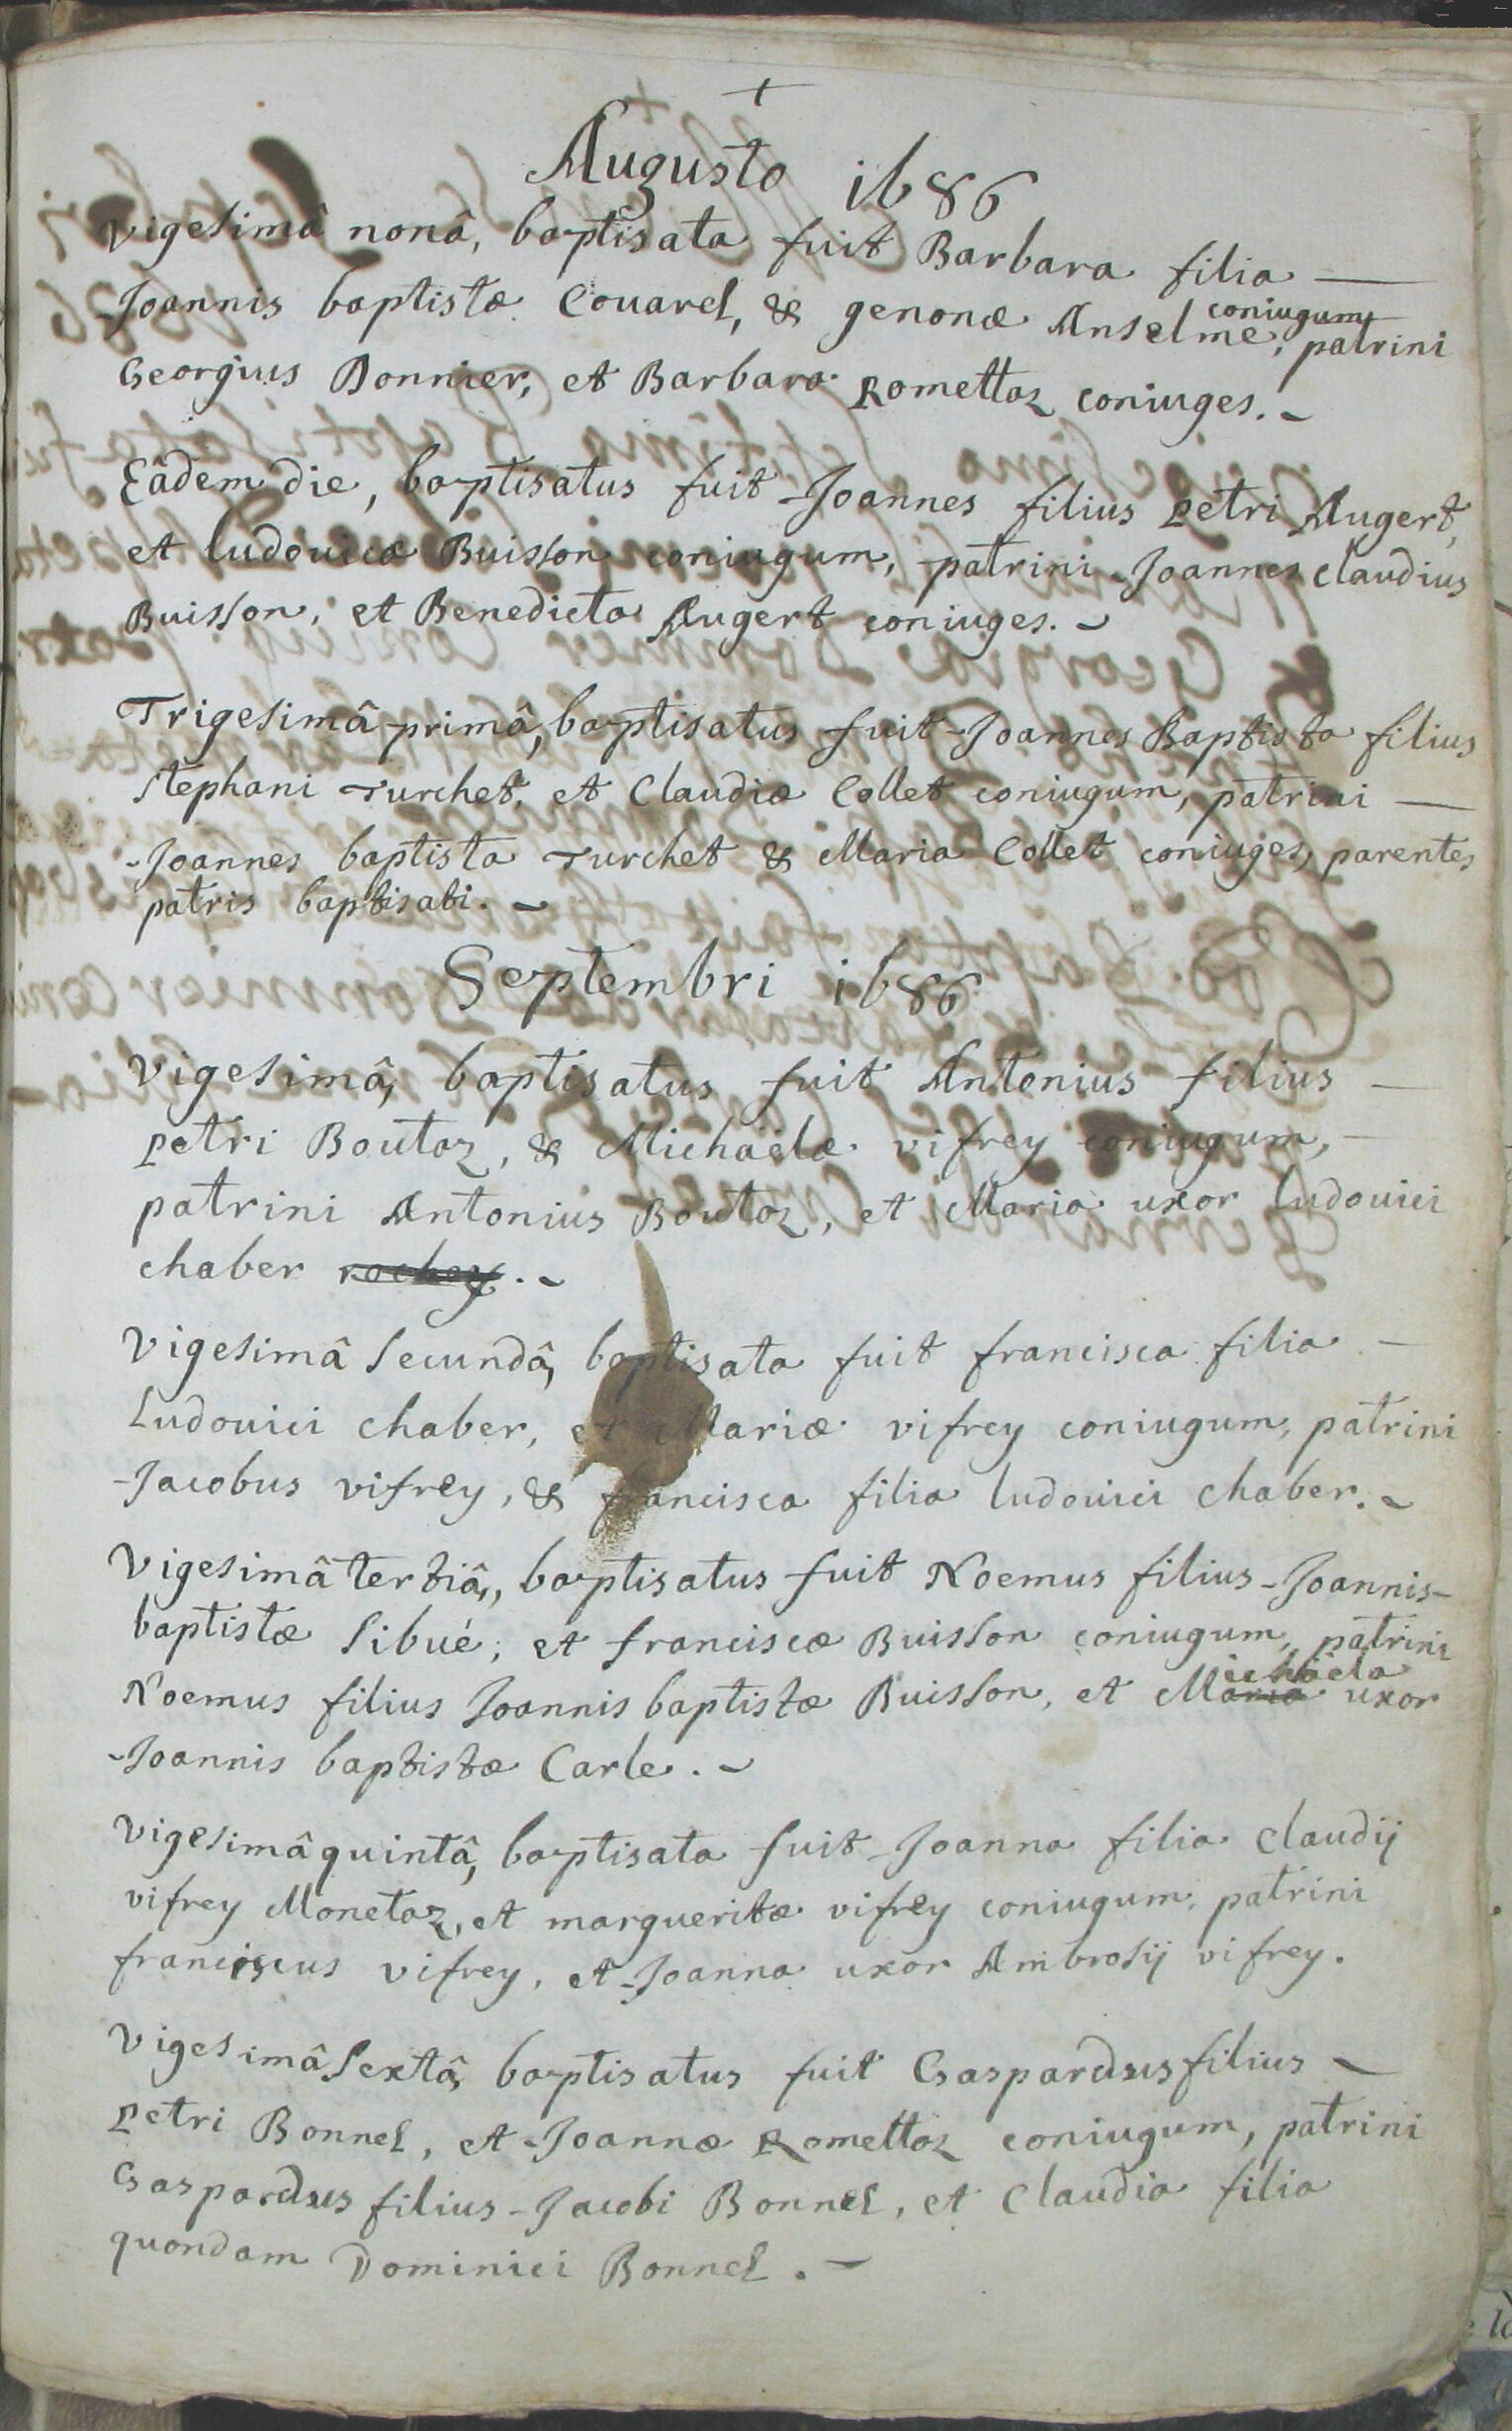 +
Augusto 1686
Vigesimâ nonâ, baptisata fuit Barbara filia —
Joannis baptistæ Couarel, & genonæ Anselme, coniugum, patrini
Georgius Bonnier, et Barbara Romettaz coniuges. ~
Eâdem die, baptisatus fuit Joannes filius petri Augert,
et ludouicæ Buisson coniugum, patrini Joannes claudius
Buisson, et Benedicta Augert coniuges. ~
Trigesimâ primâ, baptisatus fuit Joannes Baptista filius
stephani Turchet, et Claudiæ Collet coniugum, patrini —
Joannes baptista Turchet & Maria Collet coniuges, parentes
patris baptisati. ~
Septembri 1686
Vigesimâ, baptisatus fuit Antonius filius —
petri Boutaz, & Michaëlæ vifrey coniugum, —
patrini Antonius Boutaz, et Maria uxor ludouici
chaber rochey. ~
Vigesimâ secundâ, baptisata fuit francisca filia —
Ludouici chaber, et Mariæ vifrey coniugum, patrini
Jacobus vifrey, & francisca filia ludouici chaber. ~
Vigesimâ tertiâ, baptisatus fuit Noemus filius Joannis-
baptistæ sibué, et franciscæ Buisson coniugum, patrini
Noemus filius Joannis baptistæ Buisson, et Maria ichaela uxor
Joannis baptistæ Carle. ~
Vigesimâ quintâ, baptisata fuit Joanna filia claudij
vifrey Monetaz, et margueritæ vifrey coniugum, patrini
franciscus vifrey, et Joanna uxor Ambrosij vifrey.
Vigesimâ sextâ, baptisatus fuit Gaspardus filius ~
petri Bonnel, et Joannæ Romettaz coniugum, patrini
Gaspardus filius Jacobi Bonnel, et claudia filia
quondam Dominici Bonnel. ~